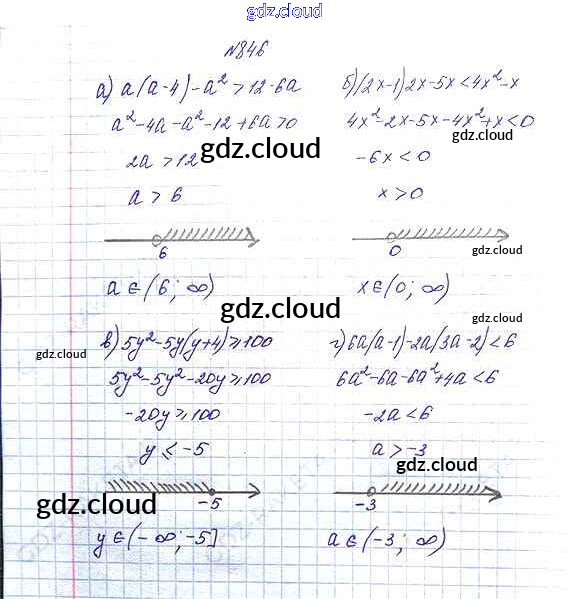 gdz.cloud
№846
а) a(a-4)-a²>12-6a
a²-4a-a²-12+6a>0
2a>12
a>6
6
a∈(6;∞)
б) (2x-1)2x-5x<4x²-x
4x²-2x-5x-4x²+x<0
-6x<0
x>0
0
x∈(0;∞)
gdz.cloud
gdz.cloud
gdz.cloud
gdz.cloud
gdz.cloud
gdz.cloud
в) 5y²-5y(y+4)≥100
5y²-5y²-20y≥100
-20y≥100
y≤-5
-5
y∈(-∞;-5]
г) 6a(a-1)-2a(3a-2)<6
6a²-6a-6a²+4a<6
-2a<6
a>-3
-3
a∈(-3;∞)
gdz.cloud
gdz.cloud
gdz.cloud